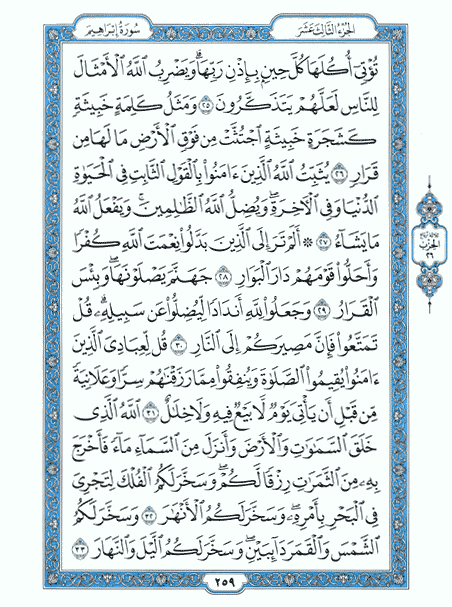 الجزء الثالث عشر
سورة إبراهيم
تُؤْتِىٓ أُكُلَهَا كُلَّ حِينٍۭ بِإِذْنِ رَبِّهَا ۗ وَيَضْرِبُ ٱللَّهُ ٱلْأَمْثَالَ
لِلنَّاسِ لَعَلَّهُمْ يَتَذَكَّرُونَ ٢٥ وَمَثَلُ كَلِمَةٍ خَبِيثَةٍ
كَشَجَرَةٍ خَبِيثَةٍ ٱجْتُثَّتْ مِن فَوْقِ ٱلْأَرْضِ مَا لَهَا مِن
قَرَارٍ ٢٦ يُثَبِّتُ ٱللَّهُ ٱلَّذِينَ ءَامَنُوا۟ بِٱلْقَوْلِ ٱلثَّابِتِ فِى ٱلْحَيَوٰةِ
ٱلدُّنْيَا وَفِى ٱلْءَاخِرَةِ ۖ وَيُضِلُّ ٱللَّهُ ٱلظَّٰلِمِينَ ۚ وَيَفْعَلُ ٱللَّهُ
مَا يَشَآءُ ٢٧ ۞ أَلَمْ تَرَ إِلَى ٱلَّذِينَ بَدَّلُوا۟ نِعْمَتَ ٱللَّهِ كُفْرًا
وَأَحَلُّوا۟ قَوْمَهُمْ دَارَ ٱلْبَوَارِ ٢٨ جَهَنَّمَ يَصْلَوْنَهَا ۖ وَبِئْسَ
ٱلْقَرَارُ ٢٩ وَجَعَلُوا۟ لِلَّهِ أَندَادًا لِّيُضِلُّوا۟ عَن سَبِيلِهِۦ ۗ قُلْ
تَمَتَّعُوا۟ فَإِنَّ مَصِيرَكُمْ إِلَى ٱلنَّارِ ٣٠ قُل لِّعِبَادِىَ ٱلَّذِينَ
ءَامَنُوا۟ يُقِيمُوا۟ ٱلصَّلَوٰةَ وَيُنفِقُوا۟ مِمَّا رَزَقْنَٰهُمْ سِرًّا وَعَلَانِيَةً
مِّن قَبْلِ أَن يَأْتِىَ يَوْمٌ لَّا بَيْعٌ فِيهِ وَلَا خِلَٰلٌ ٣١ ٱللَّهُ ٱلَّذِى
خَلَقَ ٱلسَّمَٰوَٰتِ وَٱلْأَرْضَ وَأَنزَلَ مِنَ ٱلسَّمَآءِ مَآءً فَأَخْرَجَ
بِهِۦ مِنَ ٱلثَّمَرَٰتِ رِزْقًا لَّكُمْ ۖ وَسَخَّرَ لَكُمُ ٱلْفُلْكَ لِتَجْرِىَ
فِى ٱلْبَحْرِ بِأَمْرِهِۦ ۖ وَسَخَّرَ لَكُمُ ٱلْأَنْهَٰرَ ٣٢ وَسَخَّرَ لَكُمُ
ٱلشَّمْسَ وَٱلْقَمَرَ دَآئِبَيْنِ ۖ وَسَخَّرَ لَكُمُ ٱلَّيْلَ وَٱلنَّهَارَ ٣٣
ثلاثة أرباع
الحزب
٢٦
٢٥٩